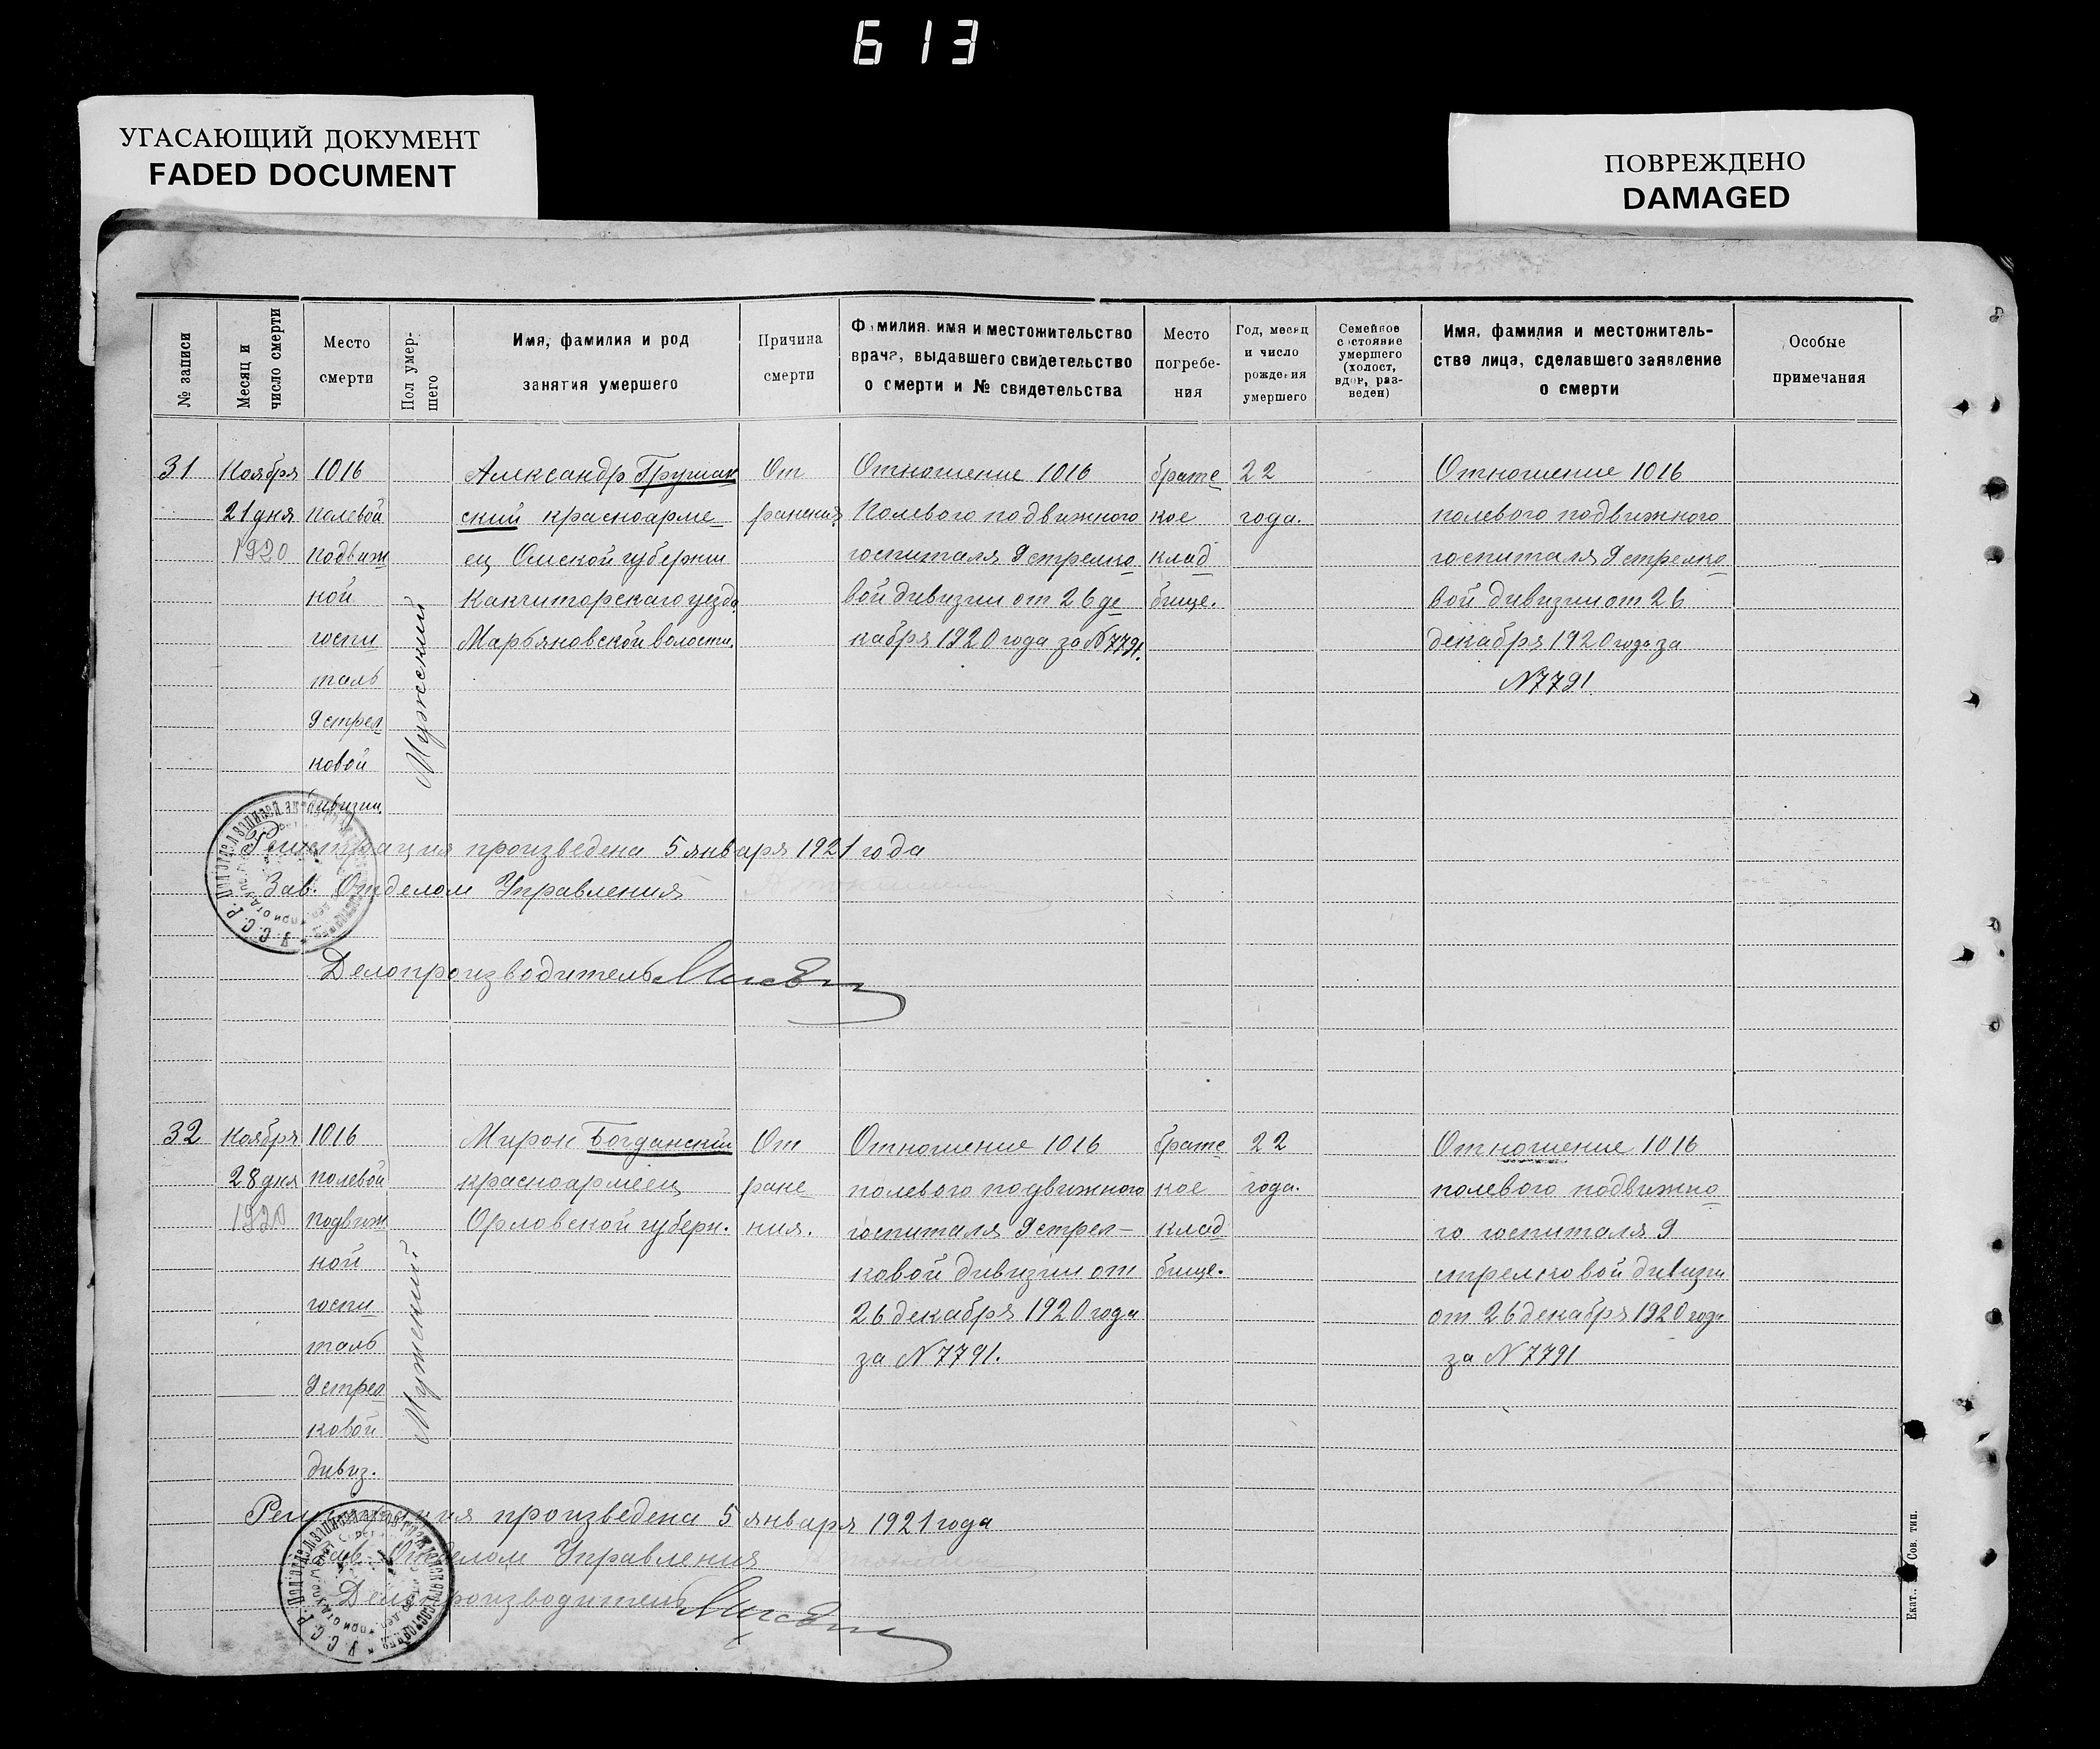 613
УГАСАЮЩИЙ ДОКУМЕНТ
FADED DOCUMENT
ПОВРЕЖДЕНО
DAMAGED
№ записи
Месяц и
число смерти
Место
смерти
Пол умер-
шего
Имя, фамилия и род
занятия умершего
Причина
смерти
Фамилия, имя и местожительство
врача, выдавшего свидетельство
о смерти и № свидетельства
Место
погребе-
ния
Год, месяц
и число
рождения
умершего
Семейное
состояние
умершего
(холост,
вдов, раз-
веден)
Имя, фамилия и местожитель-
ство лица, сделавшего заявление
о смерти
Особые
примечания
31
Ноября
21 дня
1920
1016
полевой
подвиж
ной
госпи
таль
9 стрел
ковой
дивизии.
Мужской
Александр
ский красноарме
ец Омской губернии
уезда
Марьяновской волости.
От
ранения
Отношение 1016
Полевого подвижного
госпиталя 9 стрелко
вой дивизии от 26 де
кабря 1920 года за N 7791.
братс
кое
клад
бище.
22
года.
Отношение 1016
полевого подвижного
госпиталя 9 стрелко
вой дивизии от 26
декабря 1920 года за
N 7791
Регистрация произведена 5 января 1921 года
Зав. Отделом Управления
Делопроизводитель
32
Ноября
28 дня
1920
1016
полевой
подвиж
ной
госпи
таль
9 стрел
ковой
дивиз.
Мужской
Мирон Богданский
красноармеец
Орловской губерн.
От
ране
ния.
Отношение 1016
полевого подвижного
госпиталя 9 стрел-
ковой дивизии от
26 декабря 1920 года
за N 7791.
братс
кое
клад
бище.
22
года.
Отношение 1016
полевого подвижно
го госпиталя 9
стрелковой дивизи
от 26 декабря 1920 года
за N 7791
Регистрация произведена 5 января 1921 года
Зав. Отделом Управления
Делопроизводитель
Екат. Сов. тип.